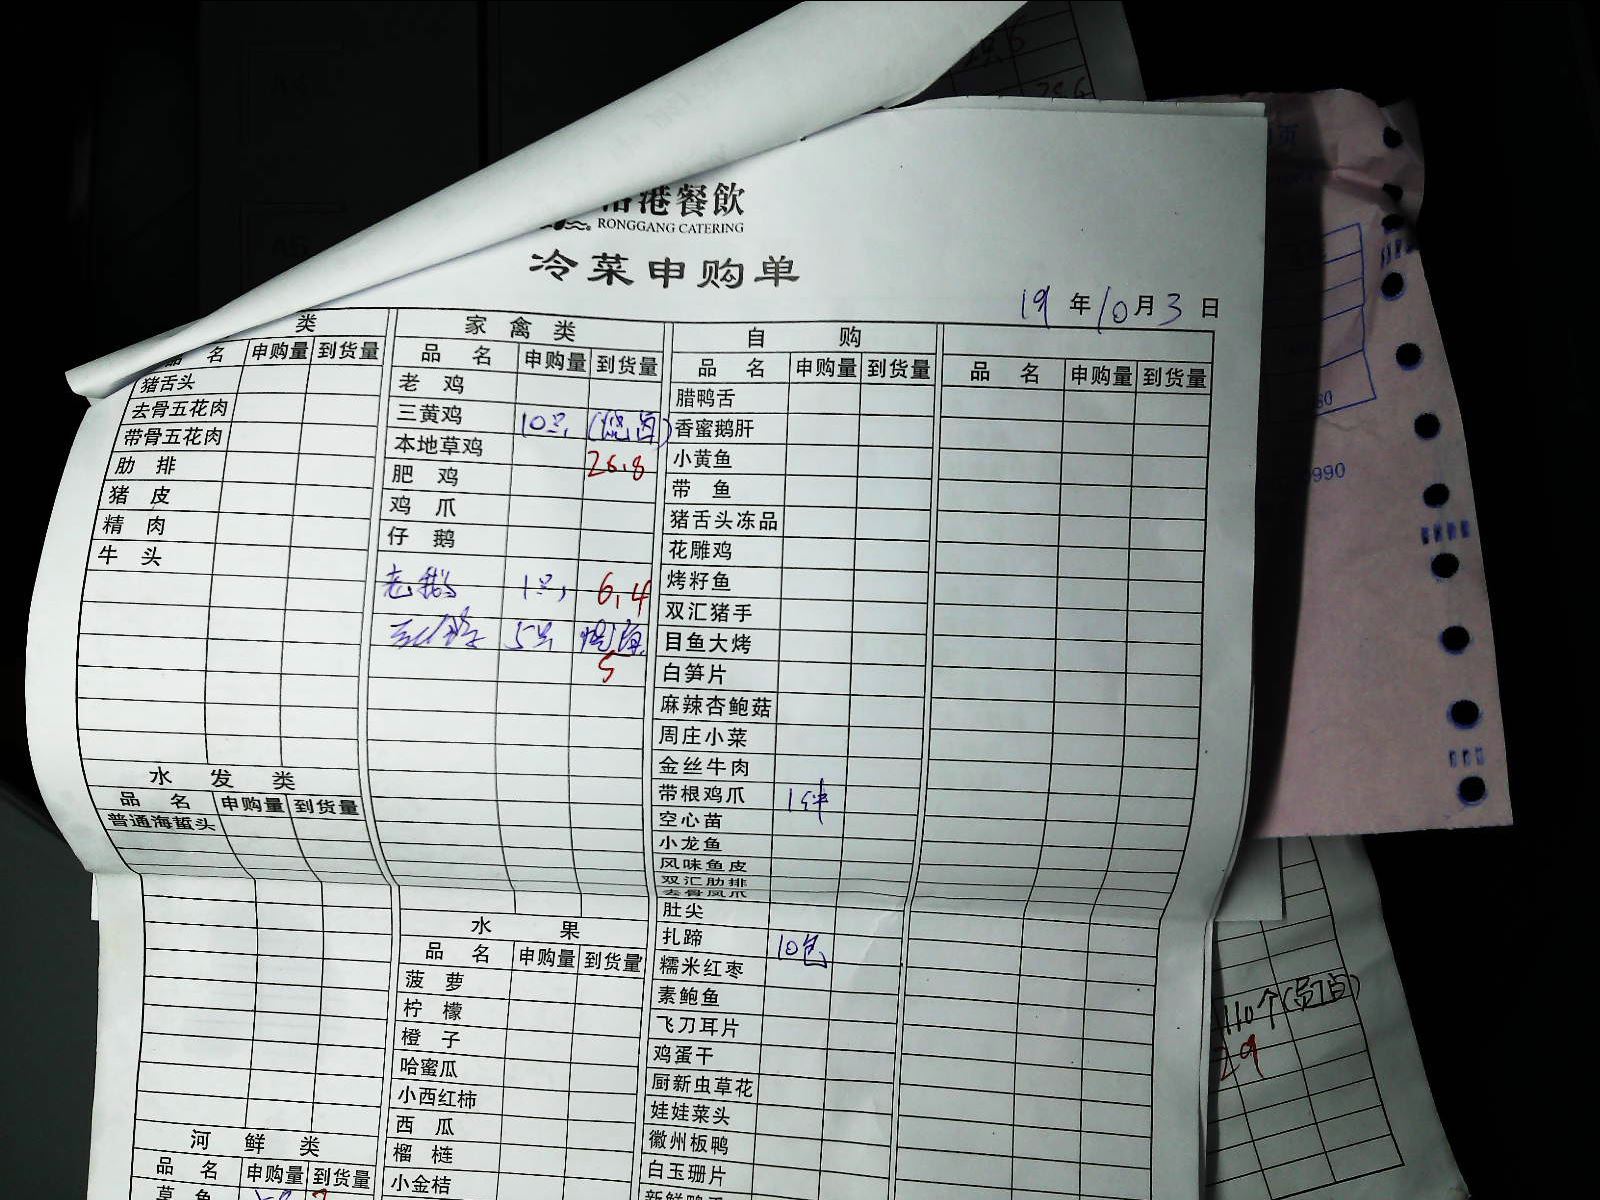 港餐飲
RONGGANG CATERING
冷菜申购单
19年10月3日
类
品 名 申购量 到货量
猪舌头
去骨五花肉
带骨五花肉
肋 排
猪 皮
精 肉
牛 头
水 发 类
品 名 申购量 到货量
普通海蜇头
河 鲜 类
品 名 申购量 到货量
草 鱼
家 禽 类
品 名 申购量 到货量
老 鸡
三黄鸡 10只 (烧卤)
本地草鸡 26.8
肥 鸡
鸡 爪
仔 鹅
老鹅 1只 6.4
5只
5
水 果
品 名 申购量 到货量
菠 萝
柠 檬
橙 子
哈蜜瓜
小西红柿
西 瓜
榴 梿
小金桔
自 购
品 名 申购量 到货量
腊鸭舌
香蜜鹅肝
小黄鱼
带 鱼
猪舌头冻品
花雕鸡
烤籽鱼
双汇猪手
目鱼大烤
白笋片
麻辣杏鲍菇
周庄小菜
金丝牛肉
带根鸡爪 1件
空心苗
小龙鱼
风味鱼皮
双汇肋排
去骨凤爪
肚尖
扎蹄 10包
糯米红枣
素鲍鱼
飞刀耳片
鸡蛋干
厨新虫草花
娃娃菜头
徽州板鸭
白玉珊片
品 名 申购量 到货量
页
80
990
110个(员工自)
29